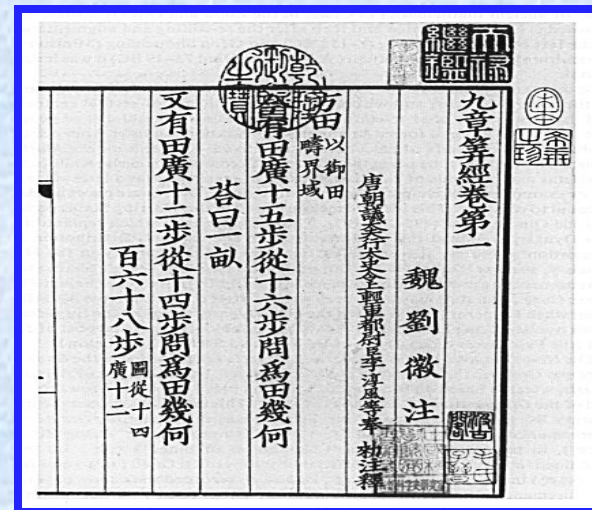 天祿繼鑑
宋本
希世之珍
乾隆御覽之寶
九章筭經卷第一
魏劉徽注
唐朝議大夫行太史令上輕車都尉臣李淳風等奉 勑注釋
方田以御田疇界域
今有田廣十五步從十六步問爲田幾何
荅曰一畝
又有田廣十二步從十四步問爲田幾何
百六十八步圖從十四廣十二